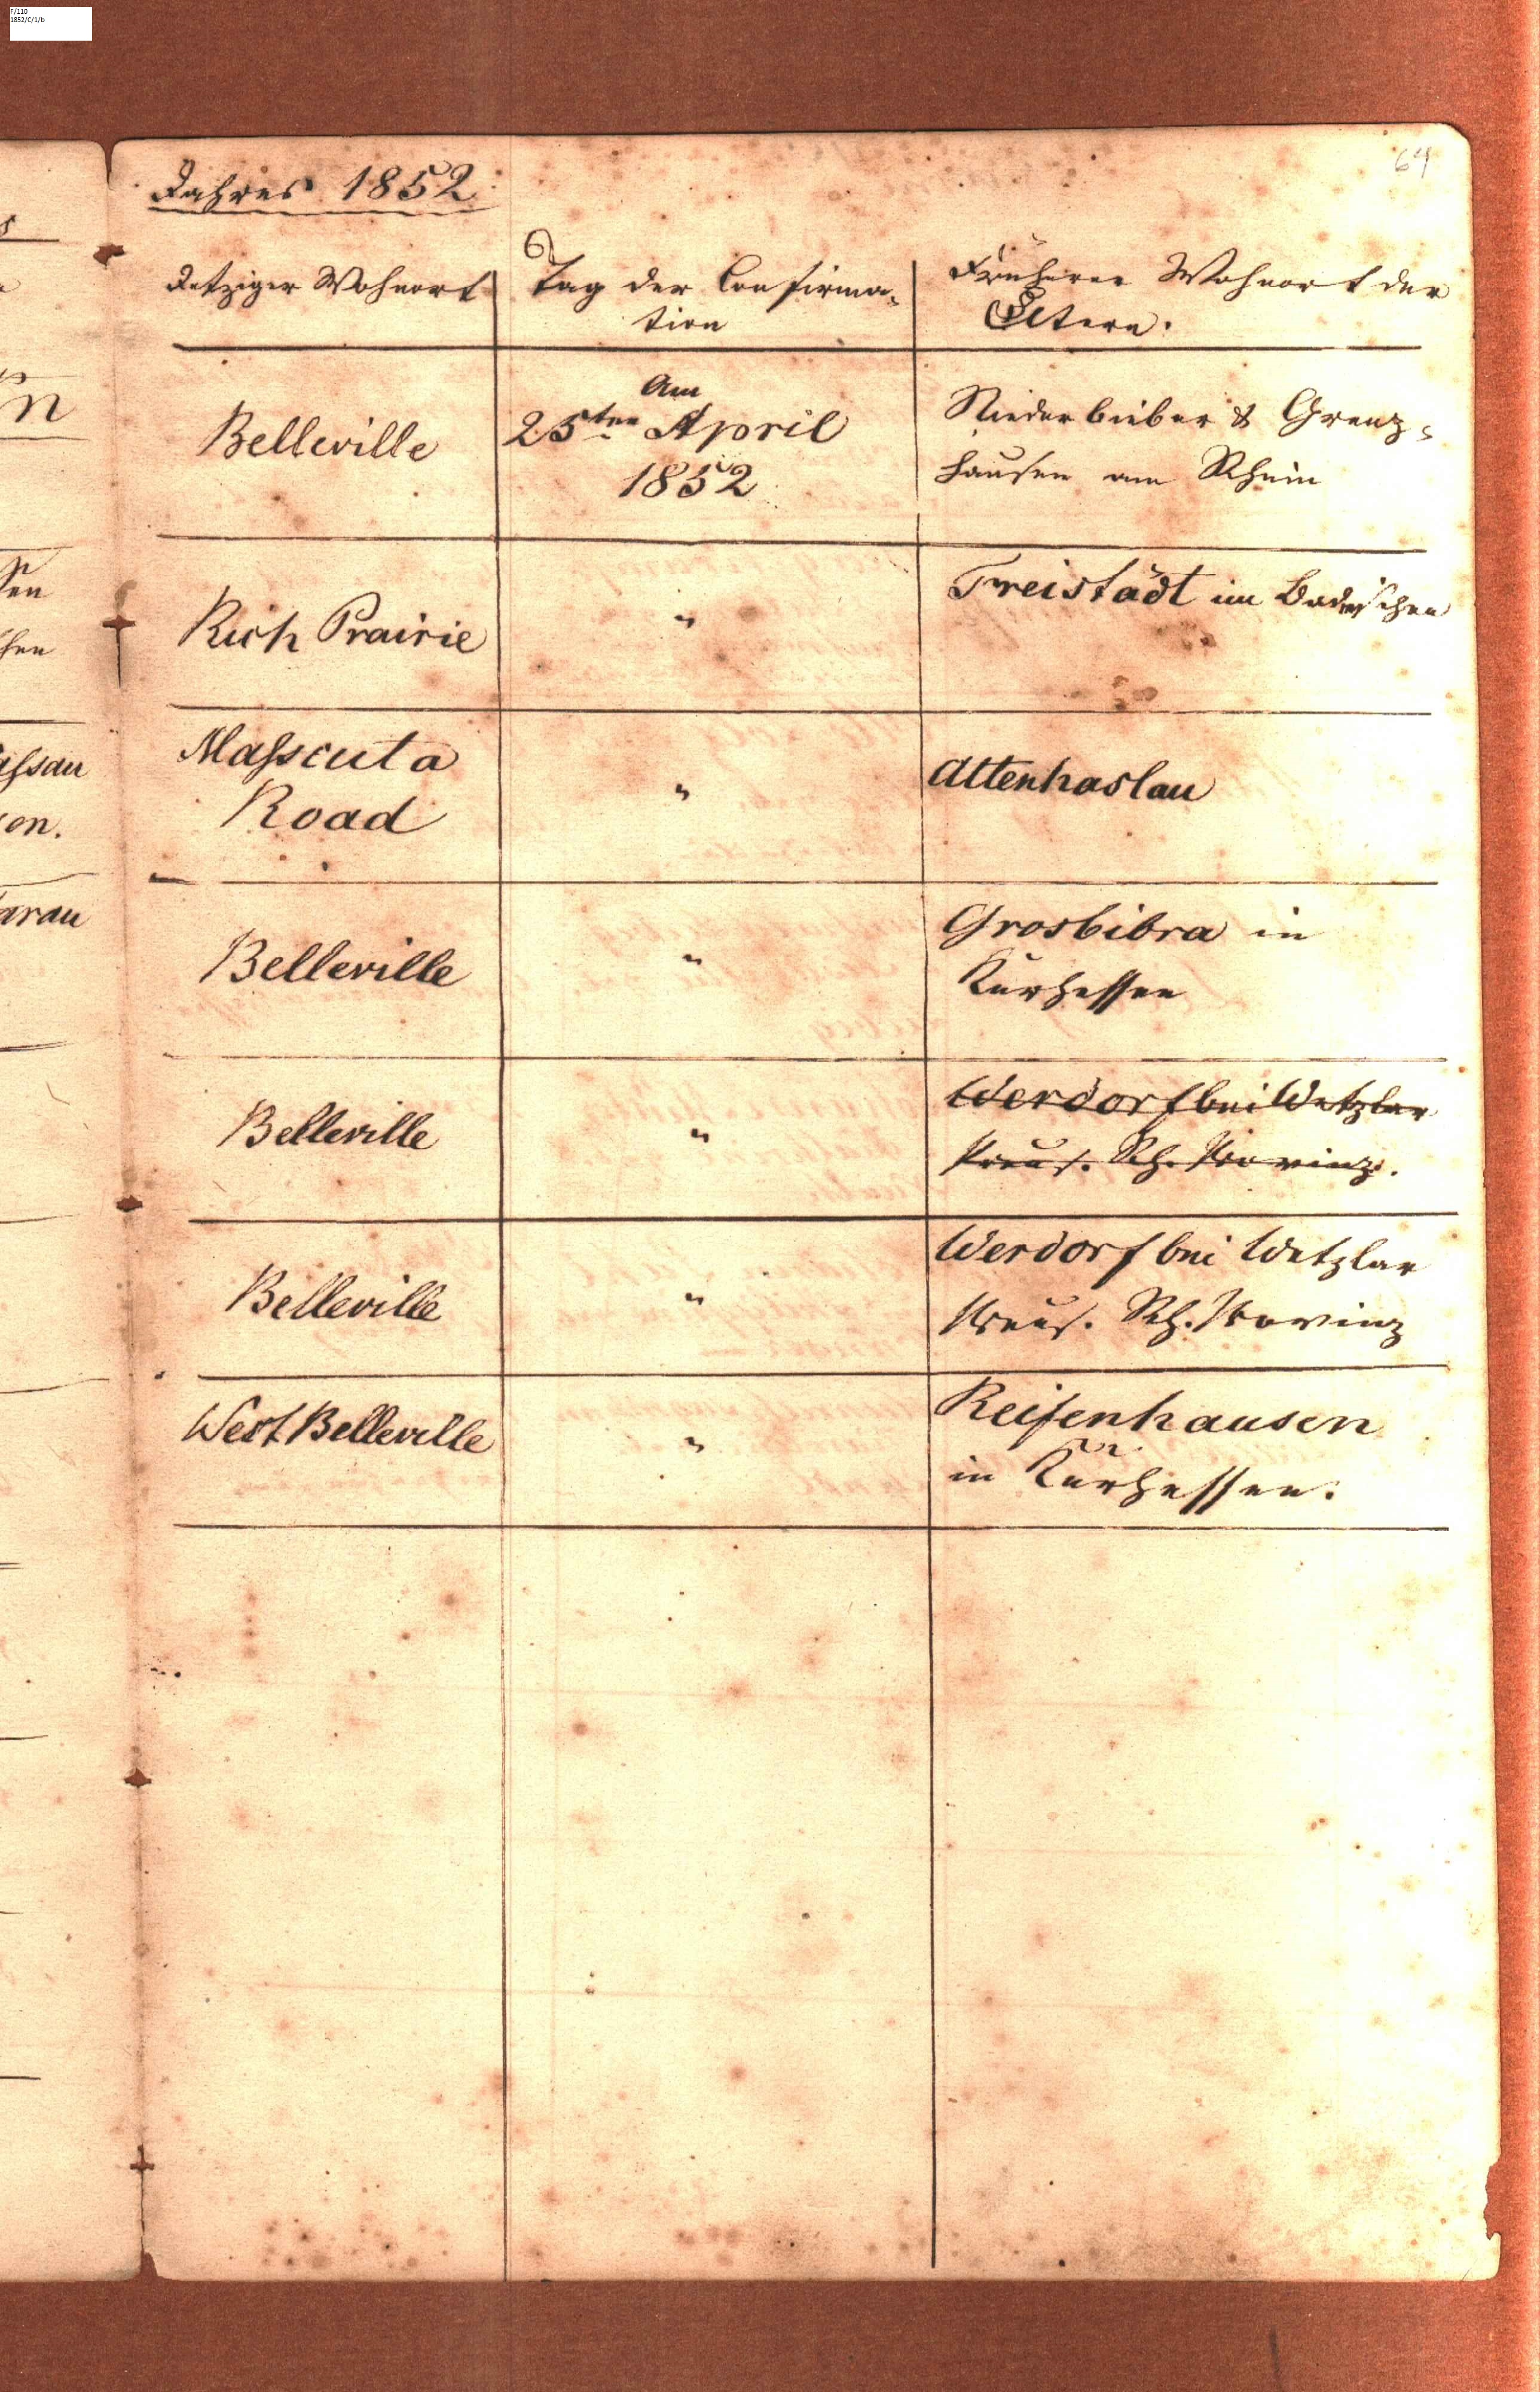 F/110
1852/C/1/b
64
Jahres 1852.
Jetziger Wohnort
Tag der Confirma-
tion
Früherer Wohnort der
Eltern.
Belleville
Am
25ten April
1852
Niederbieber & Grenz-
hausen am Rhein
Rich Prairie
"
Freistädt im Badischen
Maſscuta
Road
"
Altenhaslau
Belleville
"
Grosbibra in
Kurhessen
Belleville
"
Werdorf bei Wetzlar
Preus. Rh. Provinz.
Belleville
"
Werdorf bei Wetzlar
Preus. Rh. Provinz
West Belleville
"
Reifenhausen
in Kurhessen.